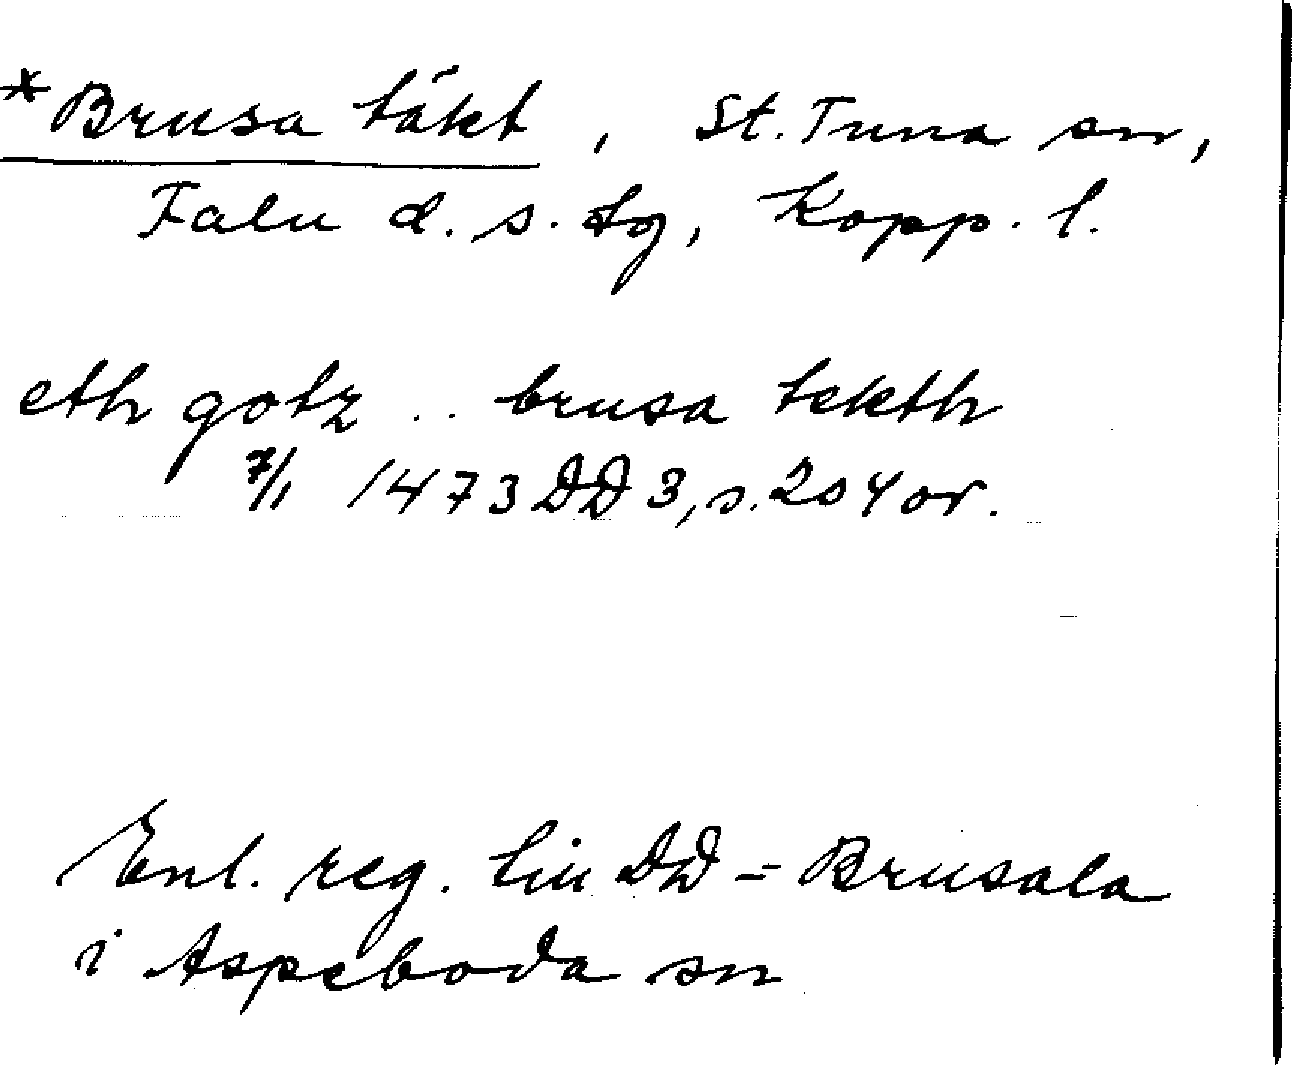 *Brusa täkt, St. Tuna sn,
Falu d. s. tg, Kopp. l.
eth gotz .. brusa tekth
7/1 1473 DD 3, s. 204 or.
Enl. reg. till DD = Brusala
i Aspeboda sn